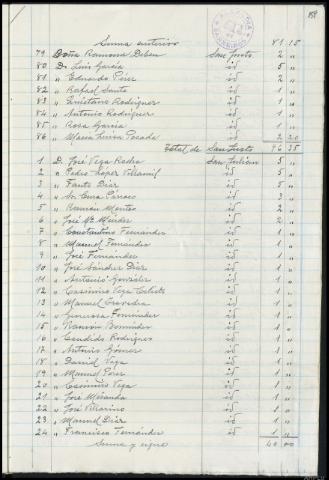 Suma anterior 81 15
79 Doña Ramona Diben San Justo 2 "
80 D. Luis García id 5 "
81 " Eduardo Pérez id 2 "
82 " Rafael Santo id 1 "
83 " Cayetano Rodríguez id 1 "
84 " Antonio Rodríguez id 1 "
85 " Rosa García id 1 "
86 " María Luisa Posada id 2 20
Total de San Justo 96 35
1 D. José Vega Rodra San Julian 5 "
2 " Pedro López Villamil id 5 "
3 " Fausto Díaz id 5 "
4 " Sr. Cura Párroco id 3 "
5 " Ramón Montes id 2 "
6 " José Mª Méndez id 2 "
7 " Constantino Fernández id 1 "
8 " Manuel Fernández id 1 "
9 " José Fernández id 1 "
10 " José Sánchez Díaz id 1 "
11 " Antonio González id 1 "
12 " Casimiro Vega id 1 "
13 " Manuel id 1 "
14 " Generosa id 1 "
15 " Ramón id 1 "
16 " Cándido Rodríguez id 1 "
17 " Antonio Gómez id 1 "
18 " Daniel Vega id 1 "
19 " Manuel Pérez id 1 "
20 " Casimiro Vega id 1 "
21 " José Miranda id 1 "
22 " José Villarino id 1 "
23 " Manuel Díaz id 1 "
24 " Francisco Fernández id 1 "
Suma y sigue 40 00